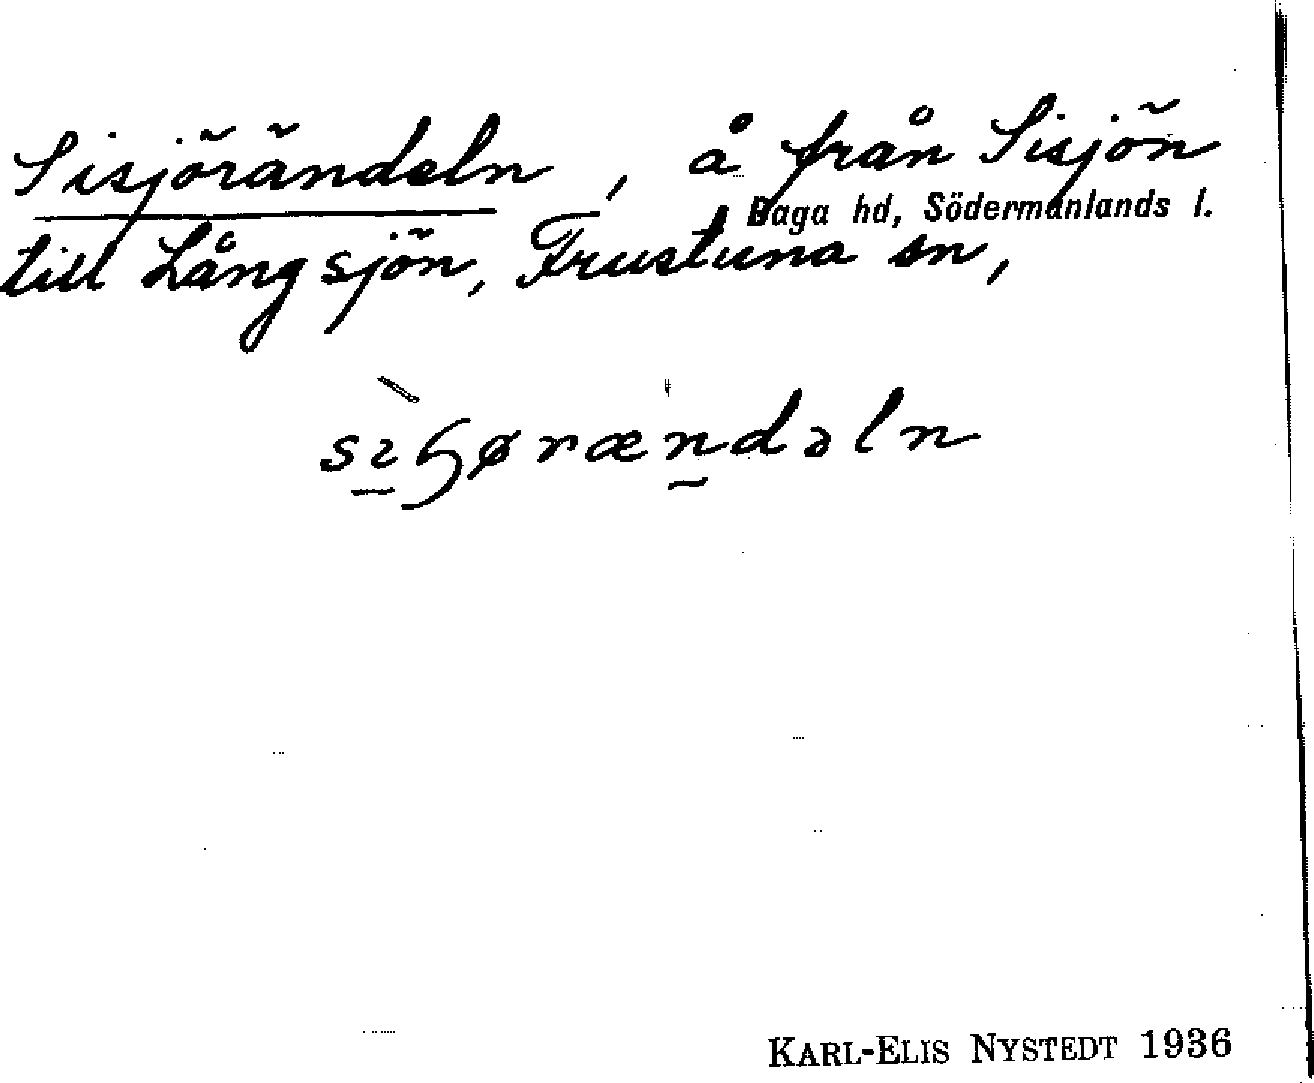 Sisjörändeln, å från Sisjön
Daga hd, Södermanlands l.
till Långsjön, Frustuna sn,
sɩɧørændəln
KARL-ELIS NYSTEDT 1936